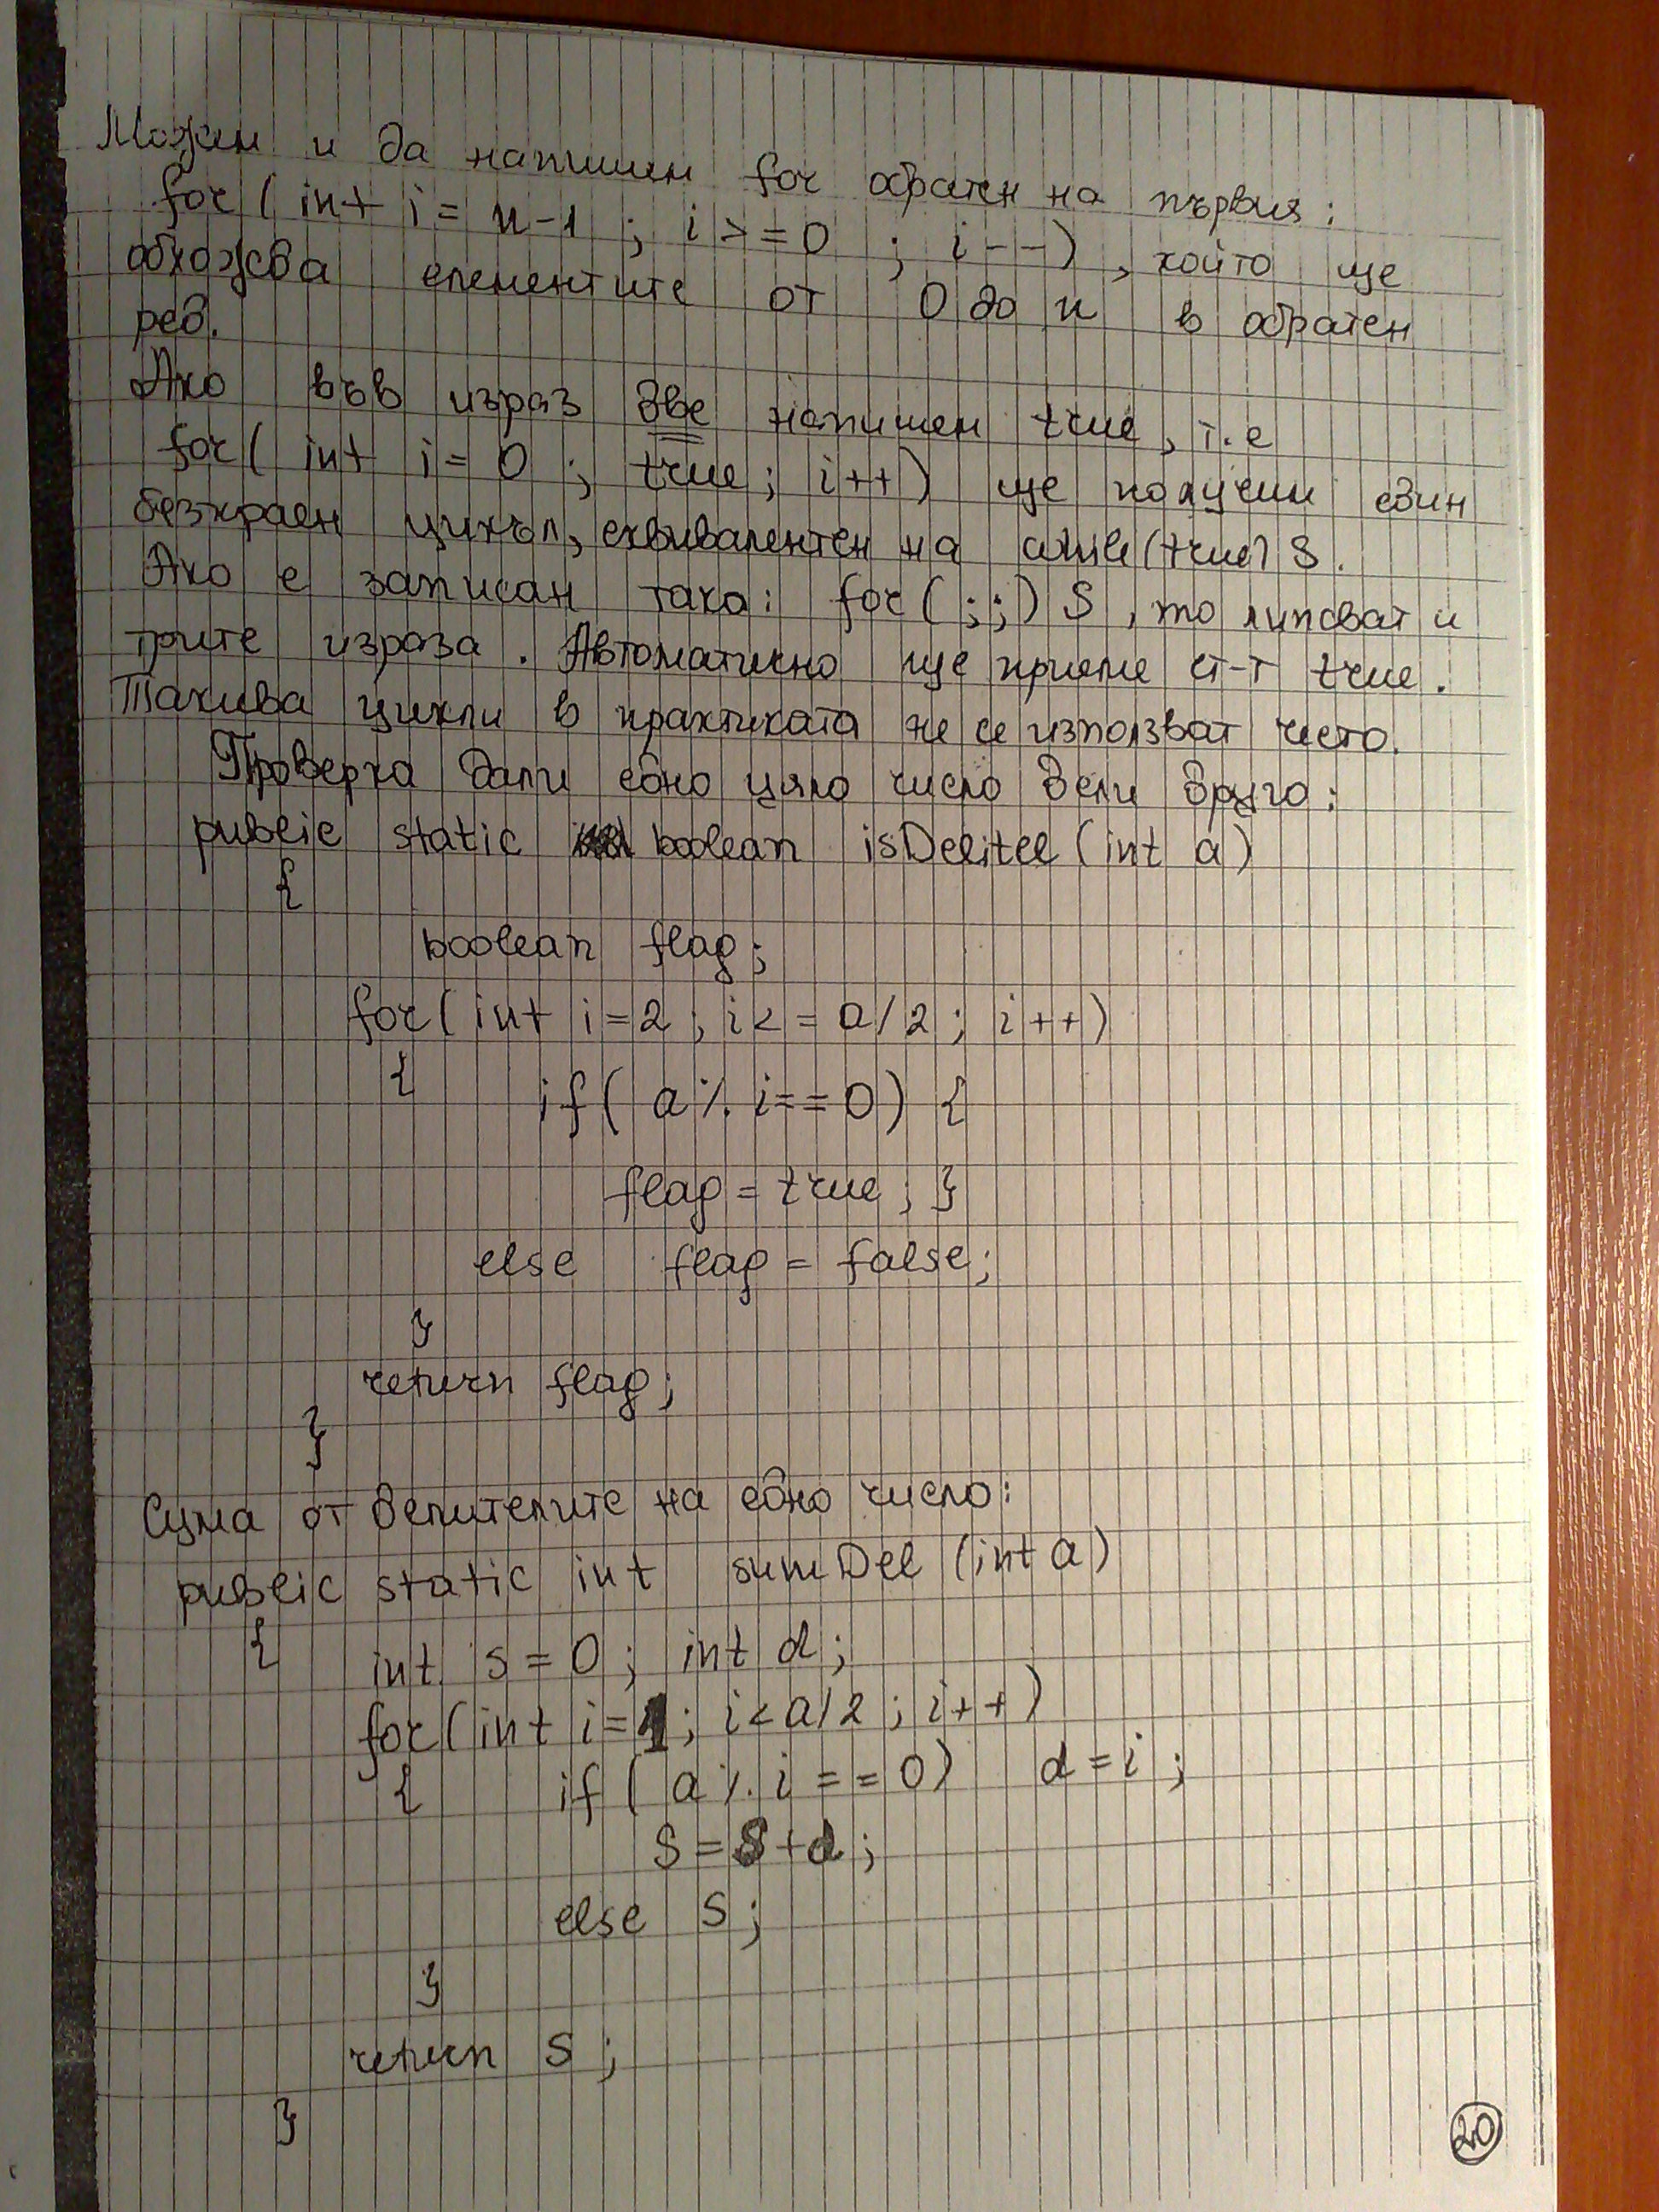 Можем и да напишем for обратен на първия:
for ( int i = n-1 ; i >= 0 ; i-- ) , който ще
обхожда елементите от 0 до n в обратен
ред.
Ако във израз две напишем true, т.е
for ( int i = 0 ; true ; i++ ) ще получим един
безкраен цикъл, еквивалентен на while(true) S.
Ако е записан така: for ( ; ; ) S , то липсват и
трите израза. Автоматично ще приеме ст-т true.
Такива цикли в практиката не се използват често.
Проверка дали едно цяло число дели друго:
public static boolean isDelitel (int a)
{
boolean flag;
for( int i=2 ; i<= a/2 ; i++)
{ if( a % i==0) {
flag = true ; }
else flag = false;
}
return flag;
}
Сума от делителите на едно число:
public static int sumDel (int a)
{ int s = 0 ; int d ;
for( int i=1 ; i<a/2 ; i++)
{ if ( a % i == 0) d = i ;
S = S + d ;
else S ;
}
return S ;
}
20